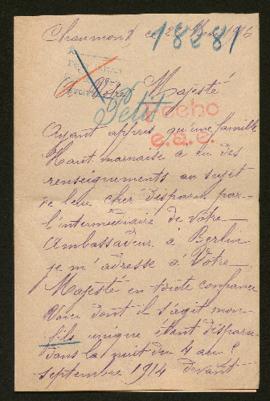 Chaumont ce 2 1916
18281
A Votre Majesté
Petit
Hecho
e.a.e.
Ayant appris qu'une famille
Haut marnaise a eu des
renseignements au sujet
de leur cher disparu par
l'intermédiaire de votre
Ambassadeur à Berlin
je m'adresse à Votre
Majesté en toute confiance
Voici dont il s'agit mon
fils unique étant disparu
dans la nuit du 4 au 5
septembre 1914 devant